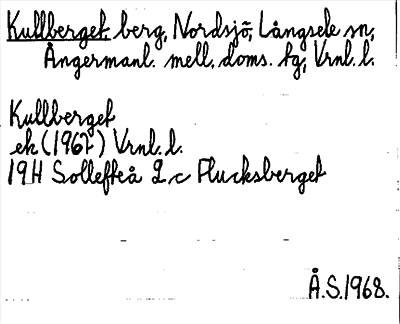 Kullberget berg, Nordsjö, Långsele sn,
Ångermanl. mell. doms. tg, Vrnl. l.
Kullberget
ek (1967) Vrnl. l.
19H Sollefteå 2 c Flucksberget
Å.S. 1968.